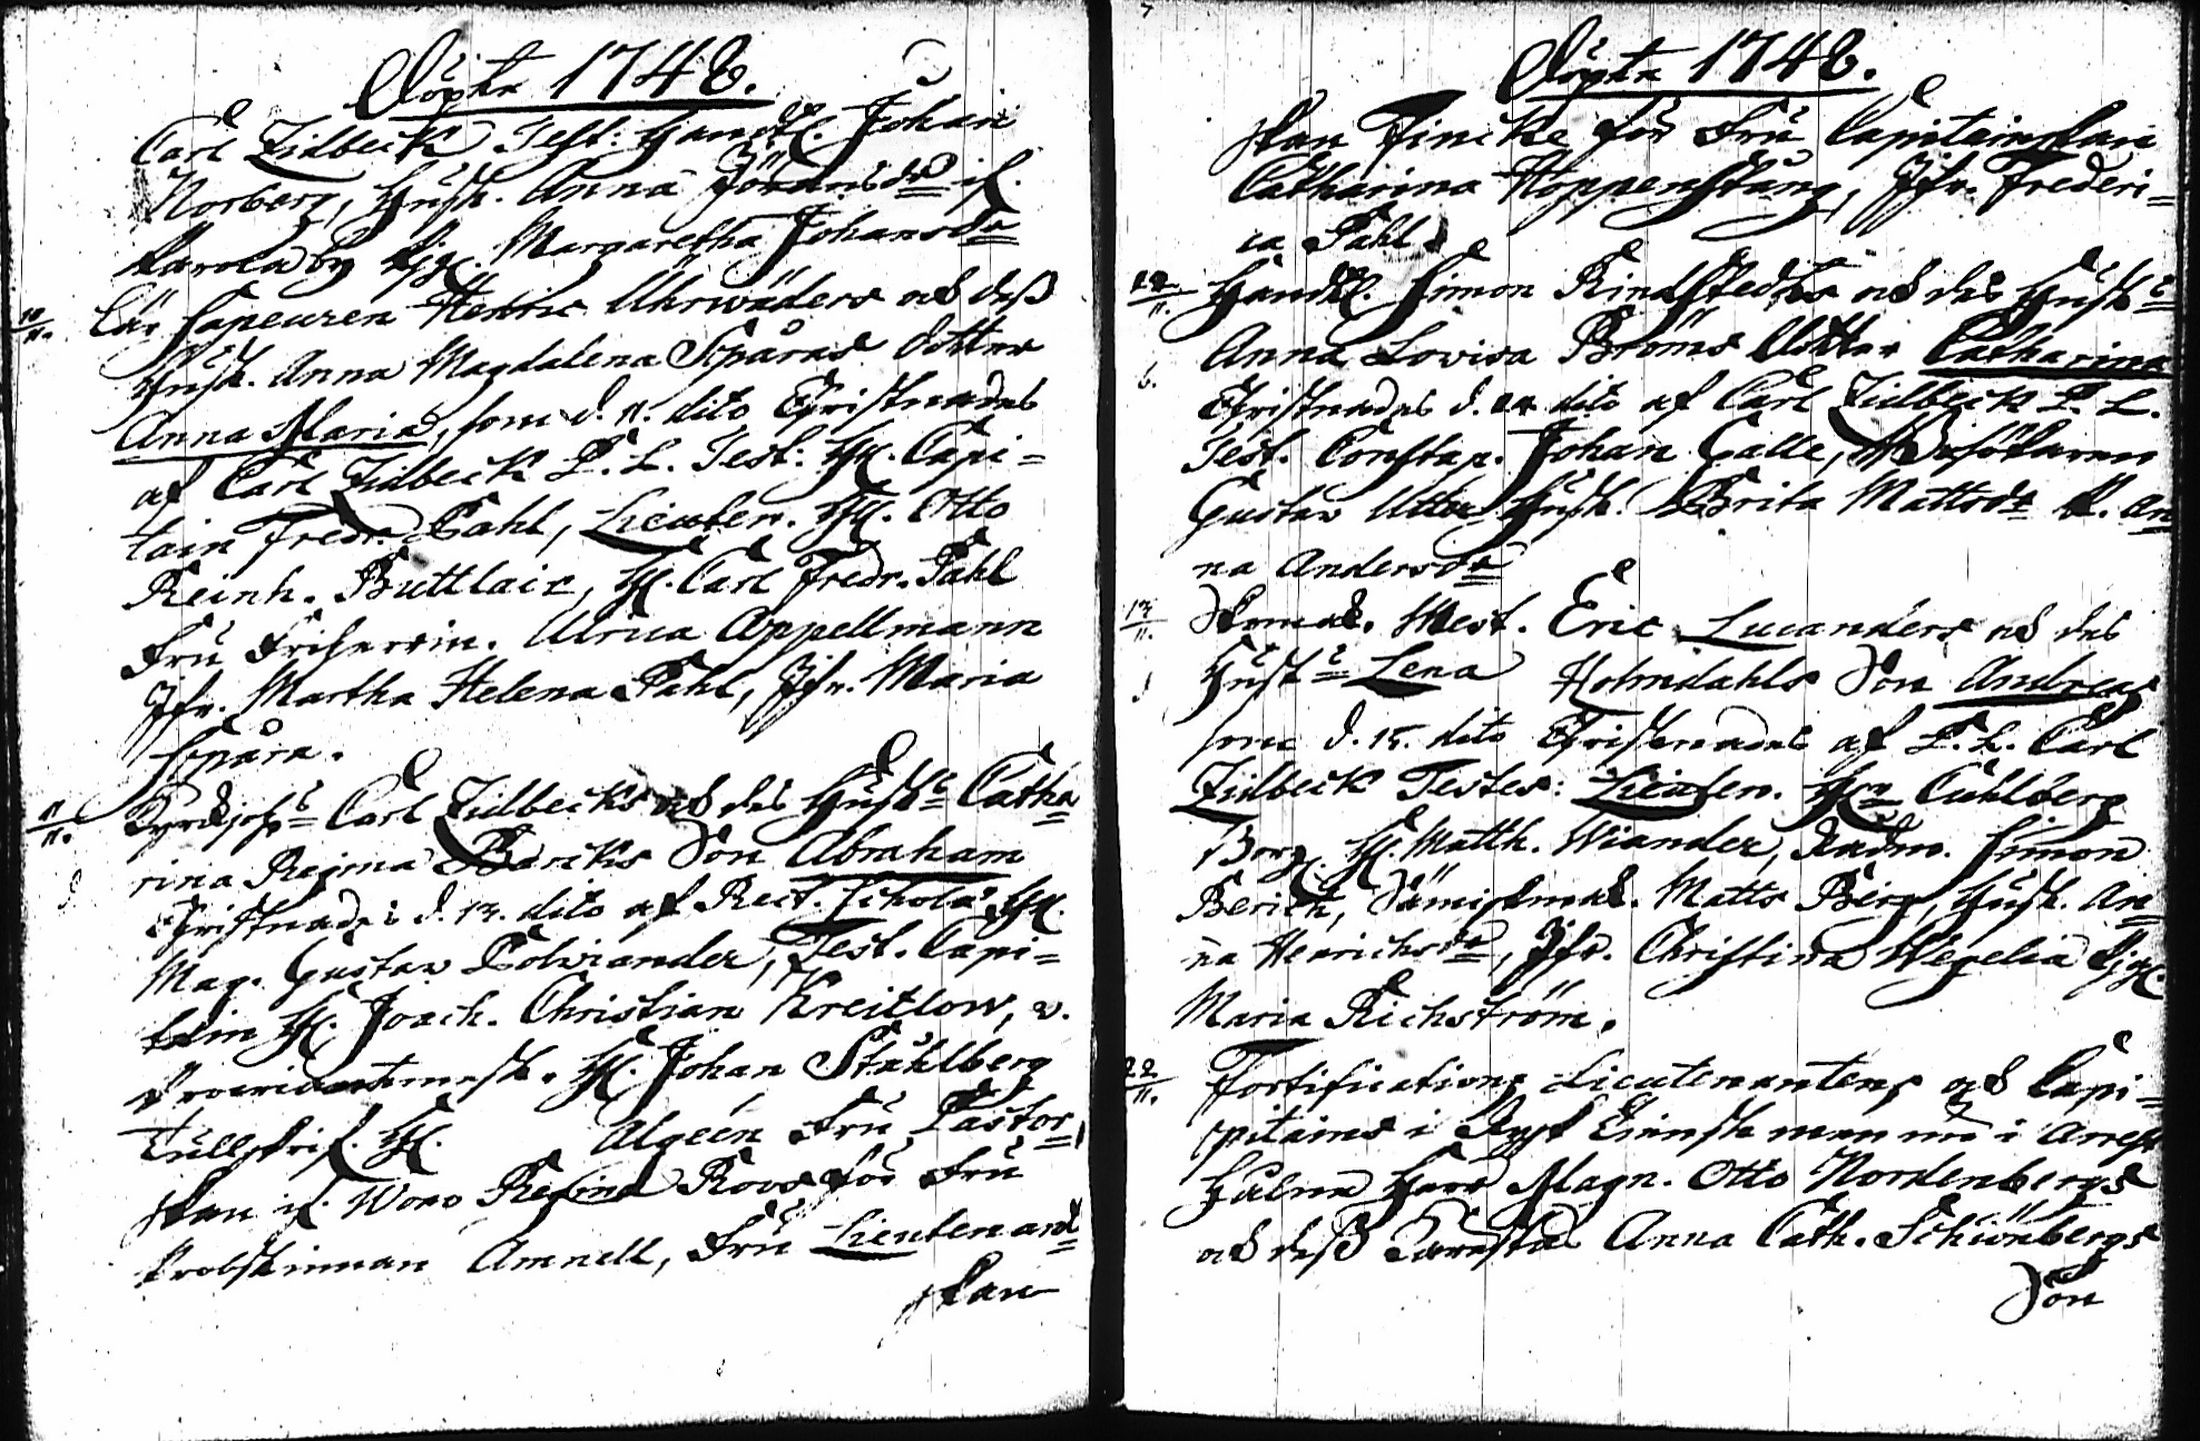 Döpte 1748.
Carl Zidbeck Test: Handl. Johan
Norberg, Hust. Anna Jöransdr if.
Karola by Pig. Margaretha Johansdr
10/11. Lär Sapeuren Henric Uhrwäders och dess
Hust. Anna Magdalena Spåras dotter
Anna Maria, som d. 11. dito Christnades
af Carl Zidbeck P. L. Test: H. Capi=
tain Fredr. Pahl, Lieuten. H. Otto
Reinh. Buttlair, H. Carl Fredr. Pahl
Fru Friherrin. Ulrica Appellmann
Jfr. Martha Helena Pahl, Jfr. Maria
Spåra.
11/11. Carl Zidbecks och des Hust. Catha=
rina Regina Bericks Son Abraham
Christnades d. 13. dito af Rect. Scholæ H.
Mag. Gustav Polviander, Test. Capi=
tain H. Joach. Christian Kreitlow, v.
Proviantmest. H. Johan Ståhlberg
Tullskrif. H. Algeen Fru Pastor=
skan if. Wero Regina Roos för Fru
Probstinnan Amnell, Fru Lieutenants=
skan
Döpte 1748.
skan Fincke för Fru Capitainskan
Catharina Hoppenstång, Jfr. Frederi=
ca Pahl.
12/11. Handl. Simon Rindstedts och des Hust.
Anna Lovisa Broms dotter Catharina
6. Christnades d. 14 dito af Carl Zidbeck P. L.
Test. Constap. Johan Calle, Besökaren
Gustav Utter Hust. Brita Mattsdr P. An=
na Andersdr
13/11. Skomak. Mest. Eric Lucanders och des
Hust. Lena Holmdahls Son Andreas
som d. 15. dito Christnades af P. L. Carl
Zidbeck Testes: Lieuten. Hr Cuhlberg
Borg. H. Matth. Wiander, Rådm. Simon
Berick, Sämiskmak. Matts Berg, Hust. An=
na Henrichsdr, Jfr. Christina Wegelia Pig.
Maria Richström.
22/11. Fortifications Lieutenantens och Capi=
pitains i Rysk tienst men nu i Arrest
hålne Herr Magn. Otto Nordenbergs
och dess Anna Cath. Schönbergs
Son